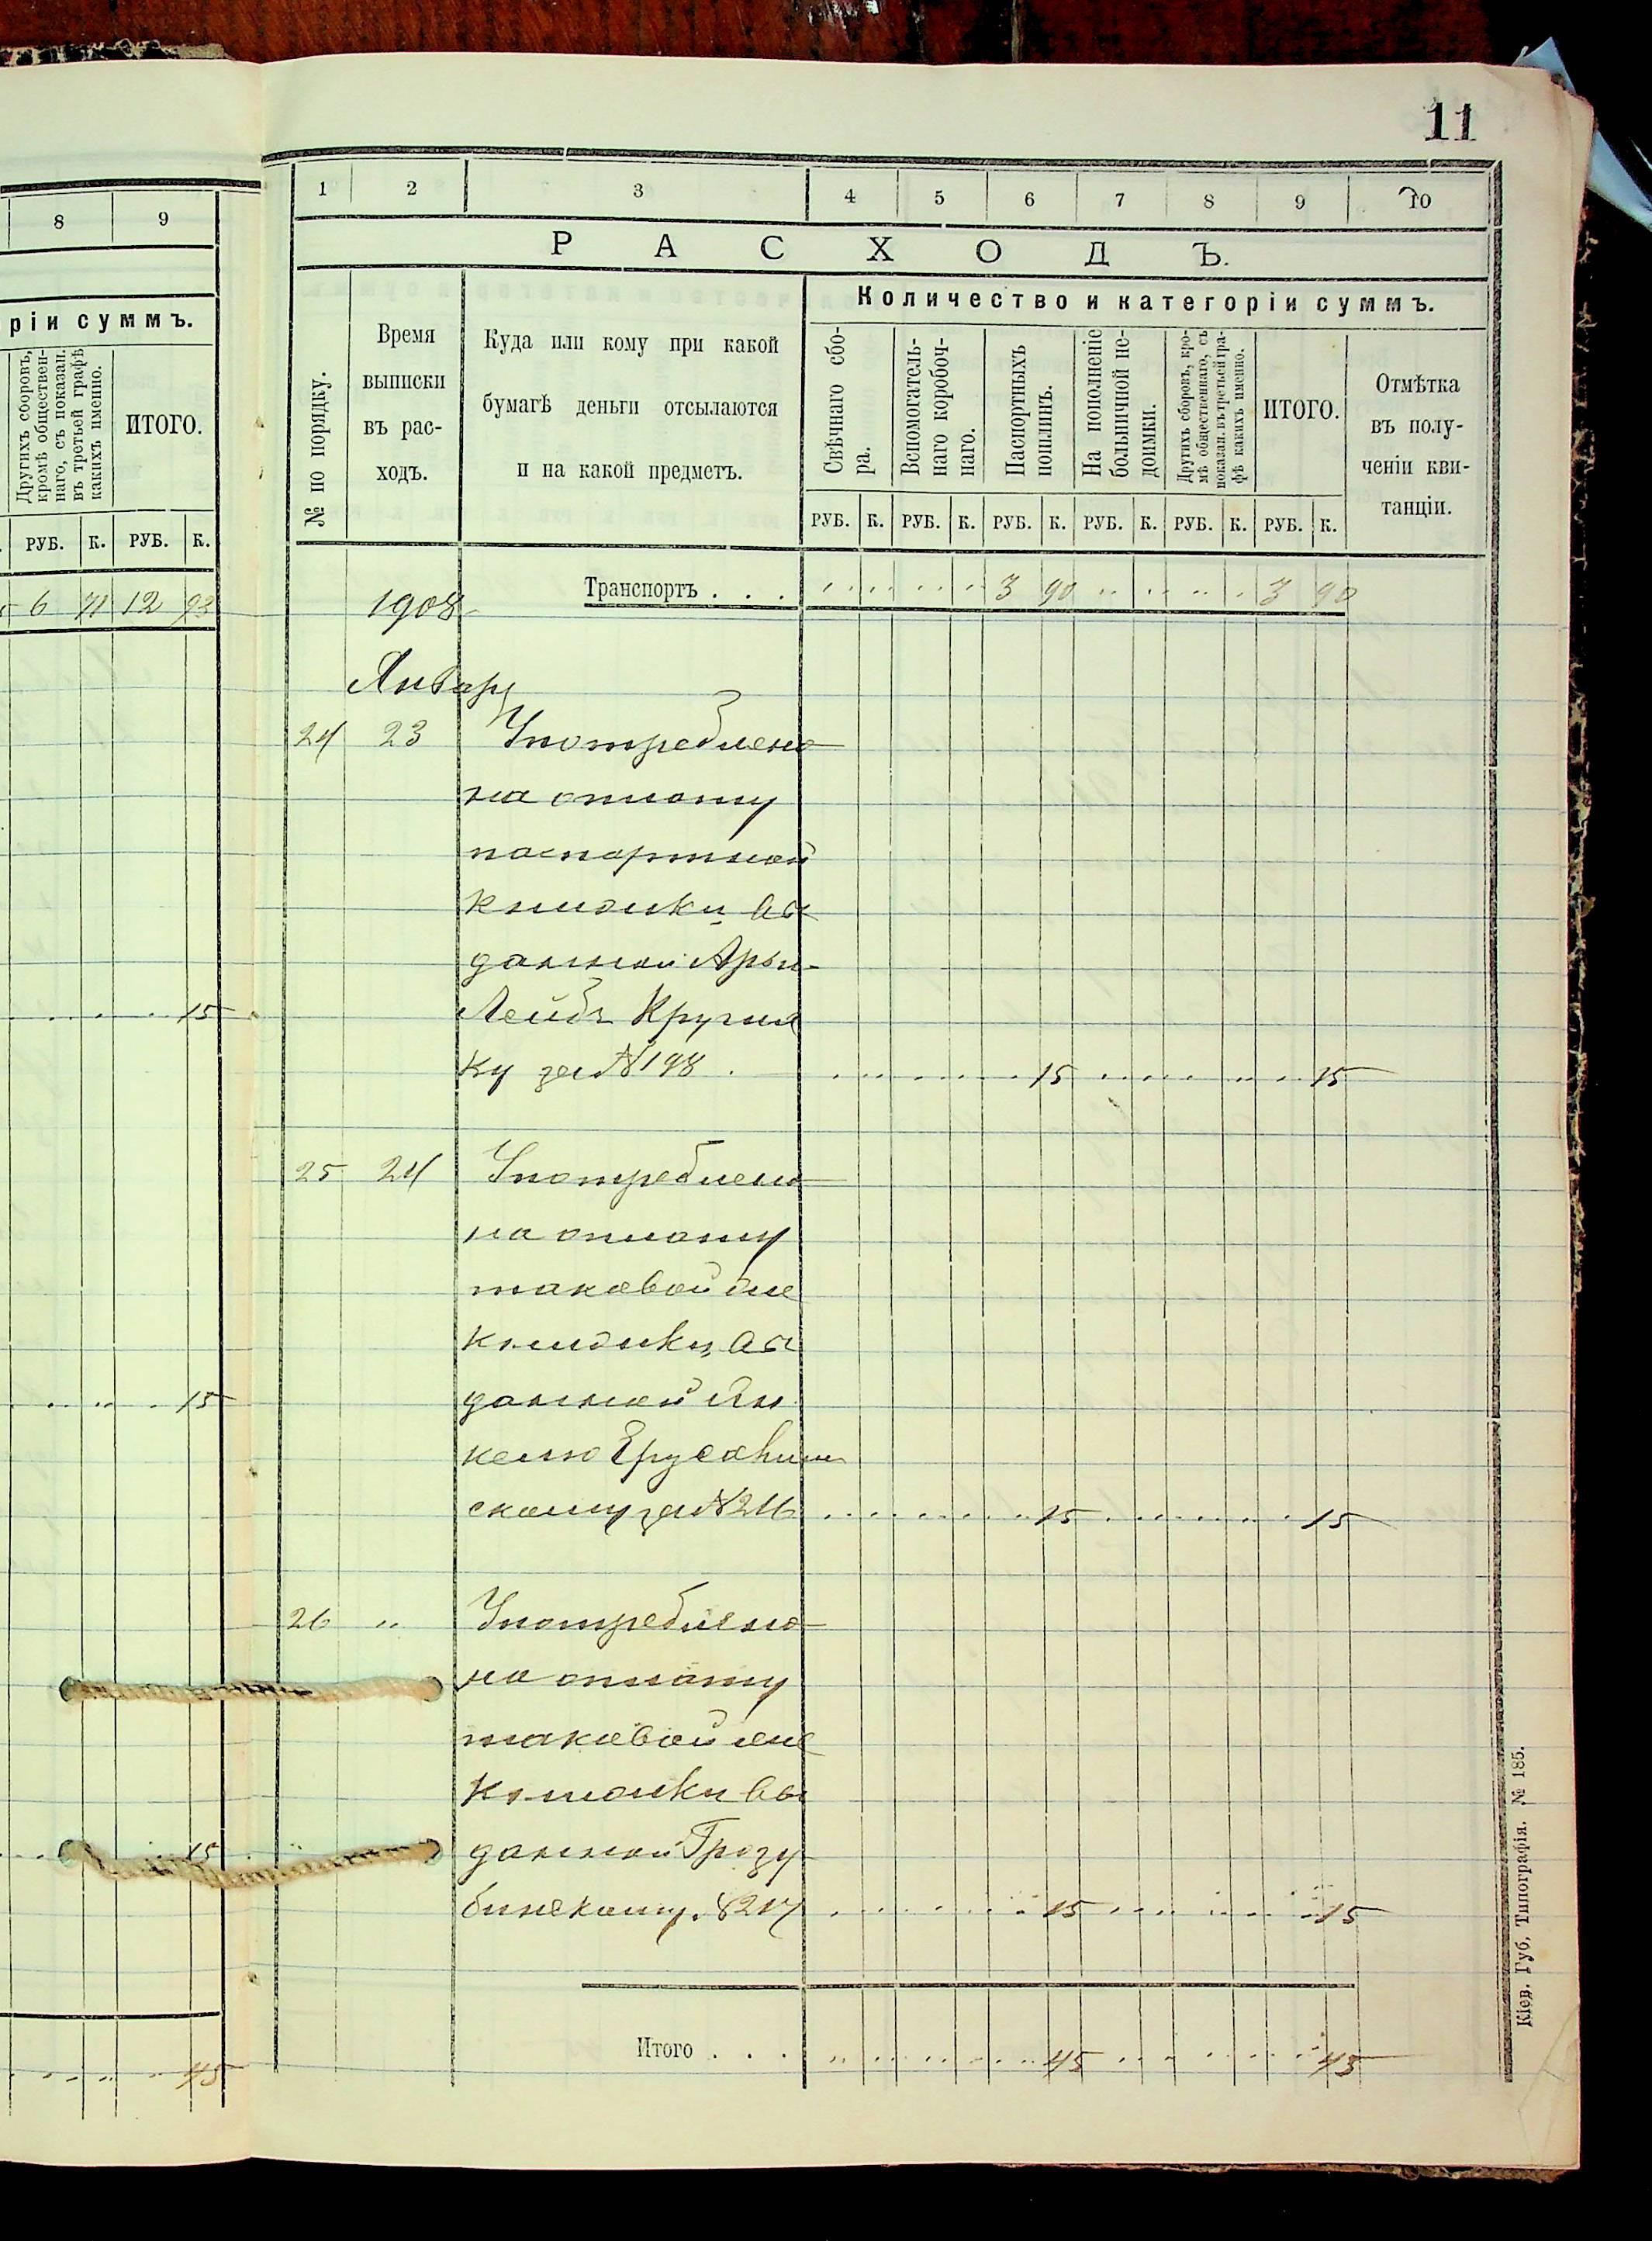 11
8 9
ріи суммъ.
Другихъ сборовъ,
кромѣ обществен-
наго, съ показан.
въ третьей графѣ
какихъ именно.
ИТОГО.
РУБ. К. РУБ. К.
6 71 12 93
15
15
15
45
1 2 3 4 5 6 7 8 9 10
РАСХОДЪ.
№ по порядку.
Время
выписки
въ рас-
ходъ.
Куда или кому при какой
бумагѣ деньги отсылаются
и на какой предметъ.
Количество и категоріи суммъ.
Свѣчнаго сбо-
ра.
Вспомогатель-
наго коробоч-
наго.
Паспортныхъ
пошлинъ.
На пополненіе
больничной не-
доимки.
Другихъ сборовъ, кро-
мѣ общественнаго, съ
показан. въ третьей гра-
фѣ какихъ именно.
ИТОГО.
Отмѣтка
въ полу-
ченіи кви-
танціи.
РУБ. К. РУБ. К. РУБ. К. РУБ. К. РУБ. К. РУБ. К.
Транспортъ . . . 3 90 3 90
1908
Январ
24 23 Употреблено
на оплату
паспортной
книжки вы
данной Арье-
Лейбъ Кругли
ку за № 198 . 15 15
25 24 Употреблено
на оплату
таковой же
книжки вы
данной Ян
келю
скому за № 216 15 15
26 " Употреблено
на оплату
таковой же
книжки вы
данной Грозу
бинскому № 217 15 15
Итого . . . 45 45
Кіев. Губ. Типографія. № 185.